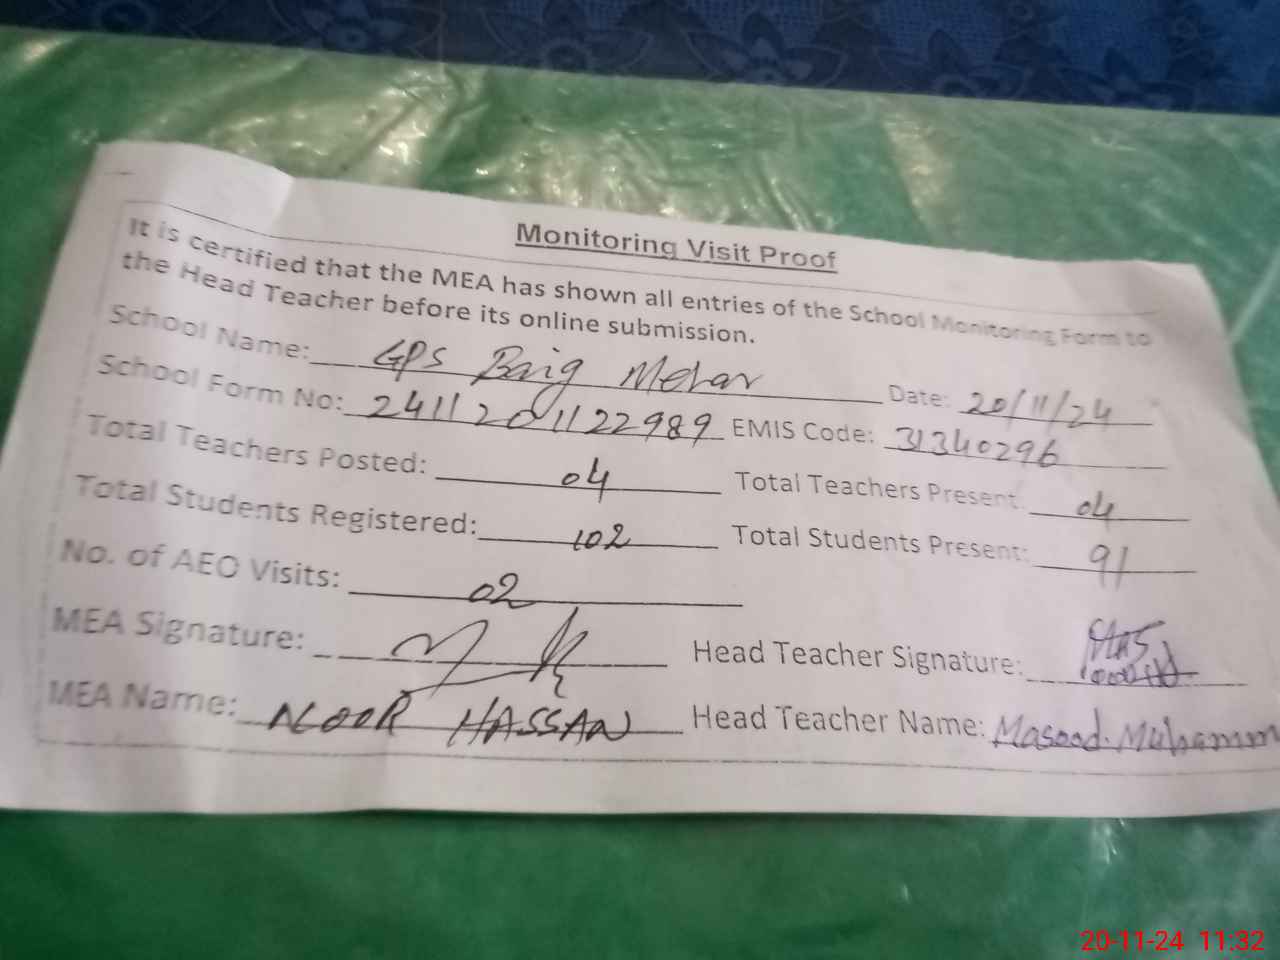 Monitoring Visit Proof
It is certified that the MEA has shown all entries of the School Monitoring Form to
the Head Teacher before its online submission.
School Name: GPS Baig Mehar Date: 20/11/24
School Form No: 2411201122989 EMIS Code: 31340296
Total Teachers Posted: 04 Total Teachers Present: 04
Total Students Registered: 102 Total Students Present: 91
No. of AEO Visits: 02
MEA Signature: Head Teacher Signature:
MEA Name: NOOR HASSAN Head Teacher Name: Masood. Muhamm
20-11-24 11:32